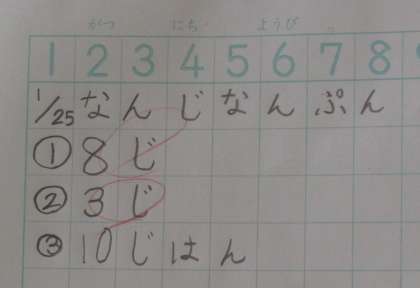 がつ にち ようび
1 2 3 4 5 6 7 8
1/25 なんじなんぷん
① 8じ
② 3じ
③ 10じはん